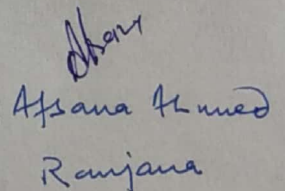 Afsana Ahmed
Ranjana